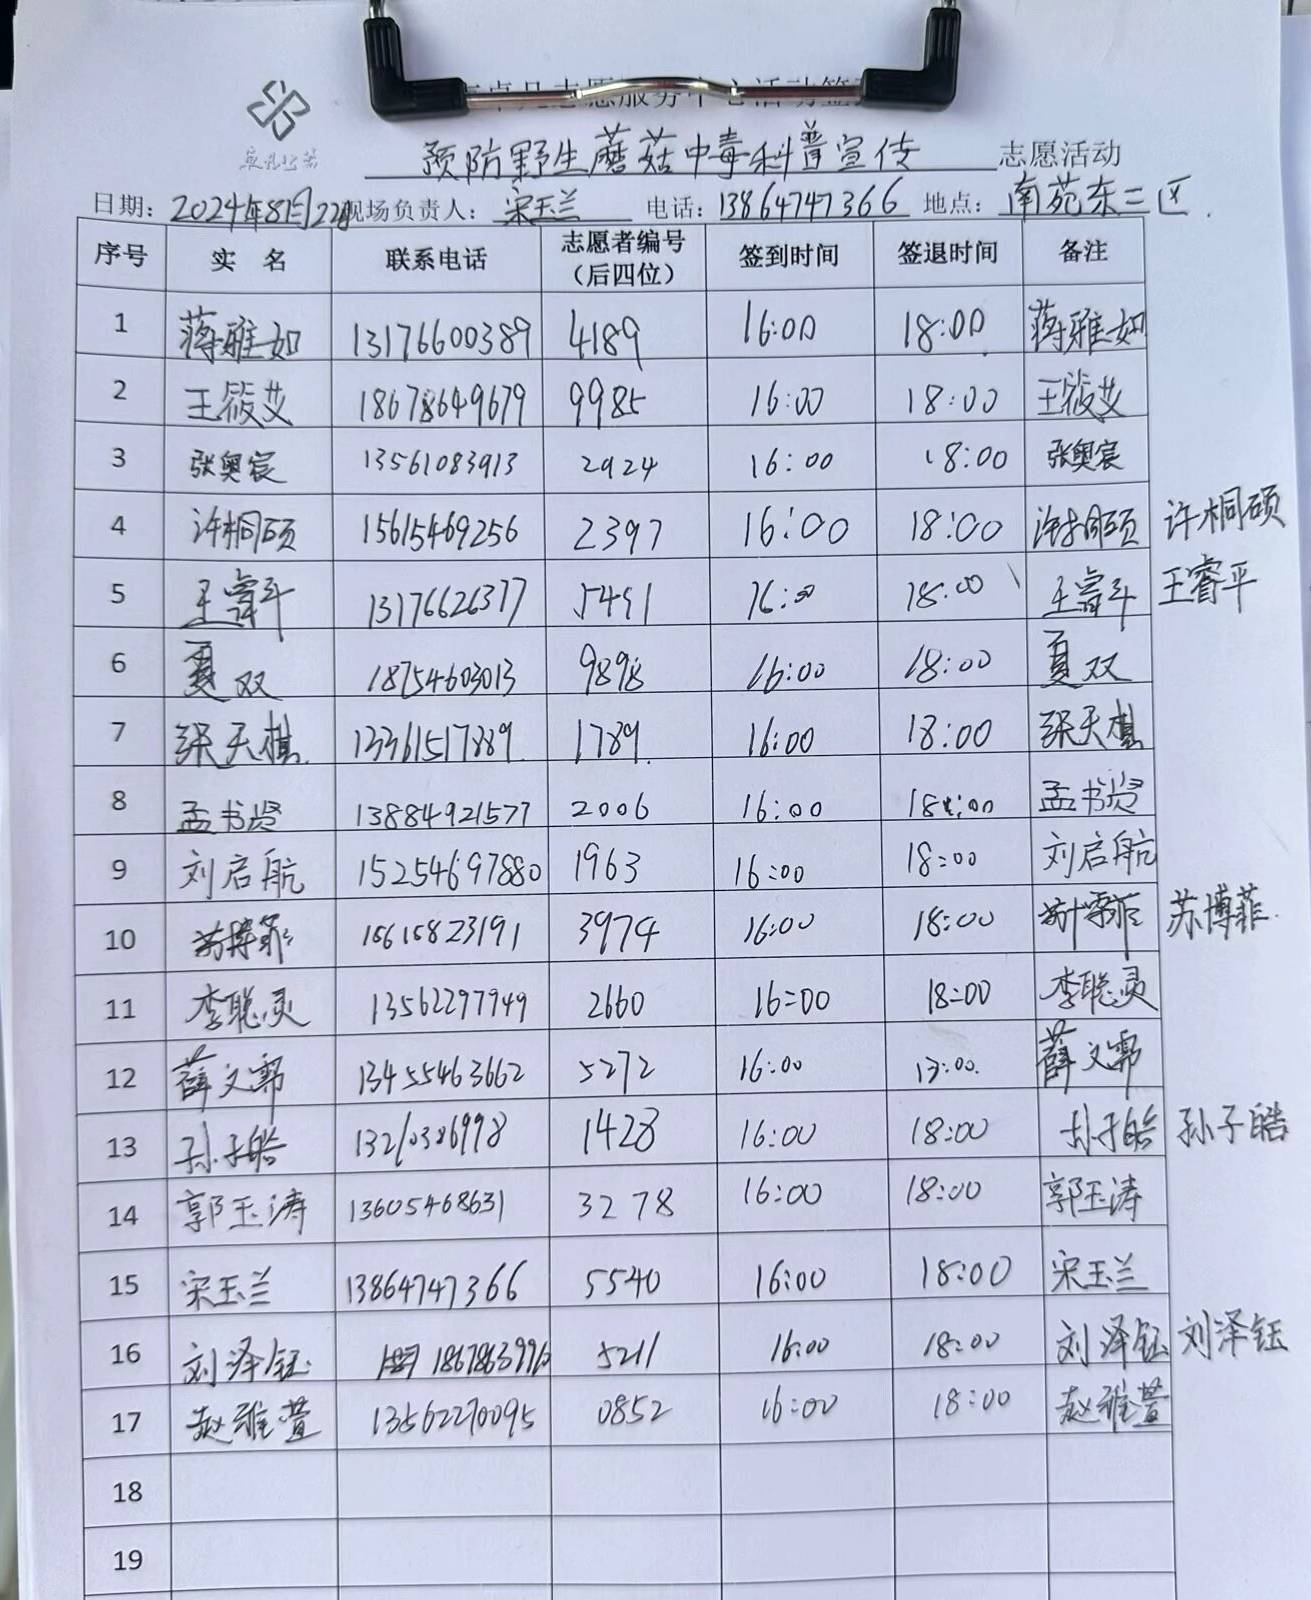 卓凡志愿服务中心活动签
卓凡公益
预防野生蘑菇中毒科普宣传 志愿活动
日期：2024年8月22日 现场负责人：宋玉兰 电话：13864747366 地点：南苑东二区.
序号 实 名 联系电话 志愿者编号（后四位） 签到时间 签退时间 备注
1 蒋雅如 13176600389 4189 16:00 18:00 蒋雅如
2 王筱艾 18678649679 9985 16:00 18:00 王筱艾
3 张奥宸 13561083913 2924 16:00 18:00 张奥宸
4 许桐硕 15615469256 2397 16:00 18:00 许桐硕 许桐硕
5 王睿平 13176626377 5491 16:00 18:00 王睿平 王睿平
6 夏双 18754603013 9898 16:00 18:00 夏双
7 张天棋 13361517889 1789 16:00 18:00 张天棋
8 孟书贤 13884921577 2006 16:00 18:00 孟书贤
9 刘启航 15254697880 1963 16:00 18:00 刘启航
10 苏博菲 15615823191 3974 16:00 18:00 苏博菲 苏博菲.
11 李聪灵 13562297949 2660 16:00 18:00 李聪灵
12 薛文郭 13455463662 5272 16:00 17:00. 薛文郭
13 孙子皓 13210386998 1428 16:00 18:00 孙子皓 孙子皓
14 郭玉涛 13605468631 3278 16:00 18:00 郭玉涛
15 宋玉兰 13864747366 5540 16:00 18:00 宋玉兰
16 刘泽钰 18678639926 5211 16:00 18:00 刘泽钰 刘泽钰
17 赵雅萱 13562270095 0852 16:00 18:00 赵雅萱
18
19